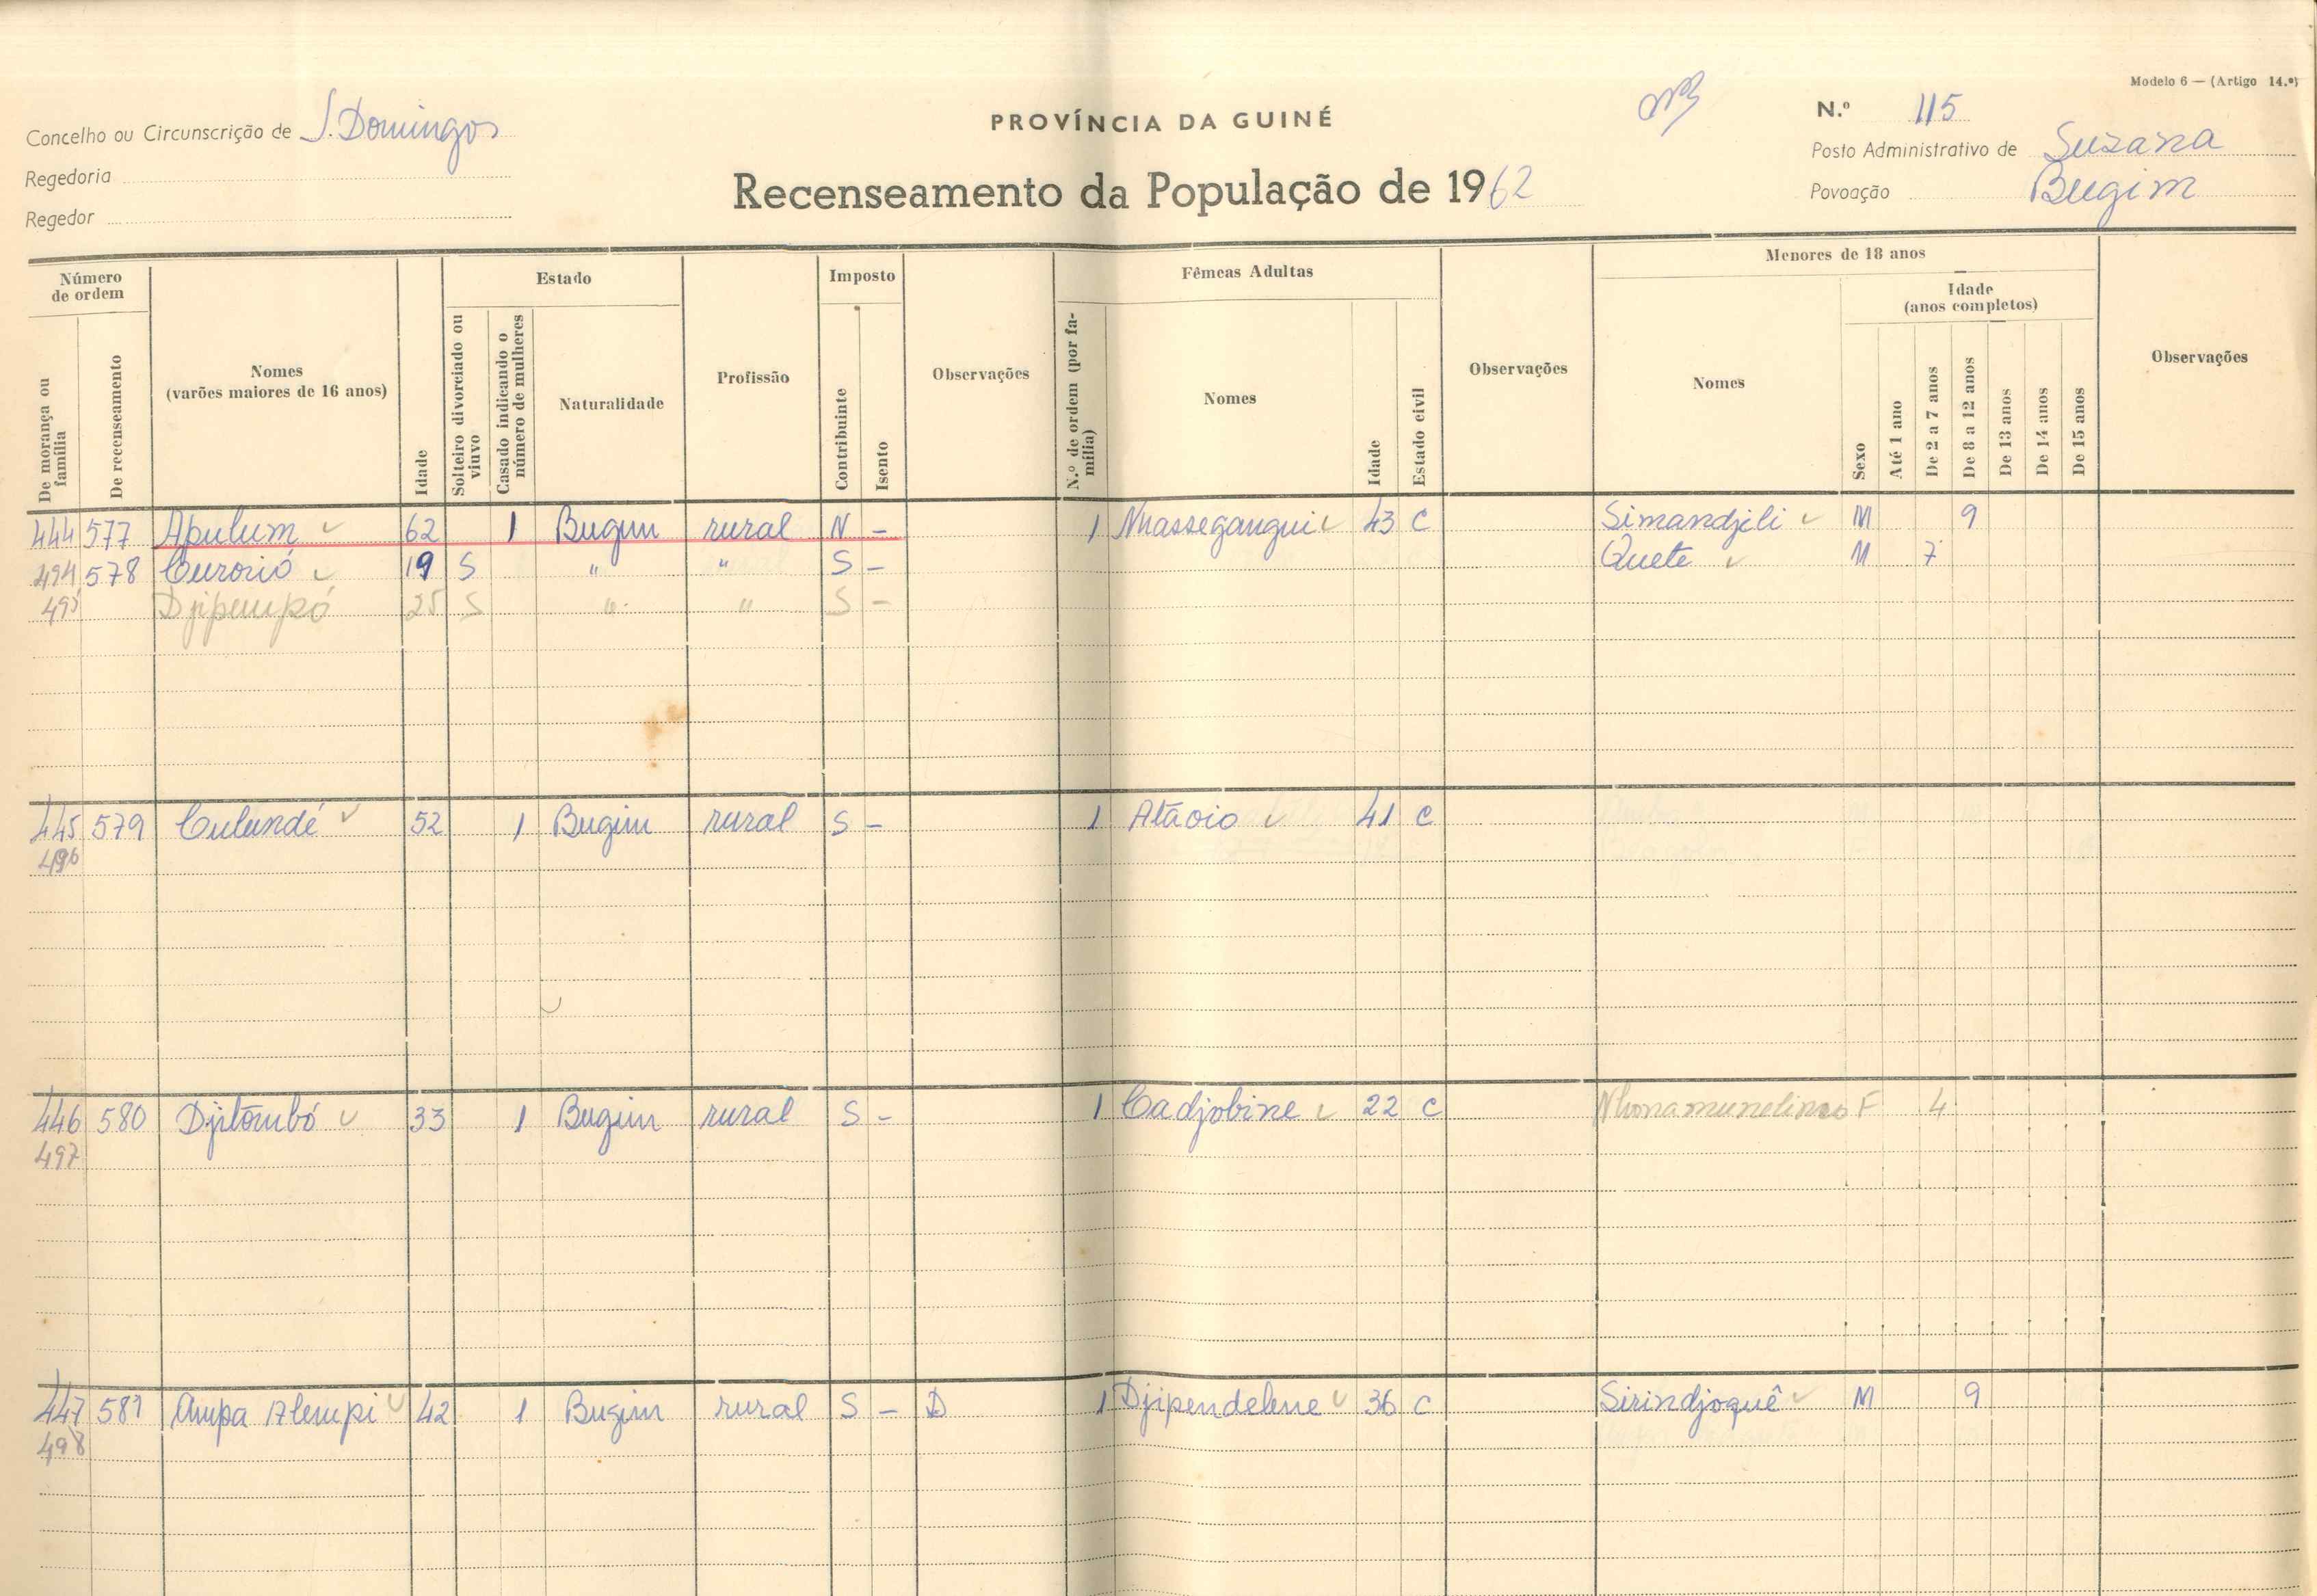 Modelo 6 — (Artigo 14.º)
Concelho ou Circunscrição de S. Domingos
PROVÍNCIA DA GUINÉ
N.º 115
Regedoria
Posto Administrativo de Suzana
Regedor
Recenseamento da População de 1962
Povoação Bugim
Número de ordem
Estado
Imposto
Fêmeas Adultas
Menores de 18 anos
Idade (anos completos)
De morança ou família
De recenseamento
Nomes (varões maiores de 16 anos)
Idade
Solteiro divorciado ou viuvo
Casado indicando o número de mulheres
Naturalidade
Profissão
Contribuinte
Isento
Observações
N.º de ordem (por família)
Nomes
Idade
Estado civil
Observações
Nomes
Sexo
Até 1 ano
De 2 a 7 anos
De 8 a 12 anos
De 13 anos
De 14 anos
De 15 anos
Observações
444 577 Apulum 62 1 Bugim rural N - 1 Nhassegangui 43 C Simandjili M 9
494 578 Curorió 19 S " " S - Quete M 7
495 Djipempó 25 S " " S -
445 579 Culundé 52 1 Bugim rural S - 1 Atãoio 41 C
496
446 580 Djitombó 33 1 Bugim rural S - 1 Cadjobine 22 C F 4
497
447 581 Ampa Alempi 42 1 Bugim rural S - D 1 Djipendelene 36 C Sirindjoquê M 9
498